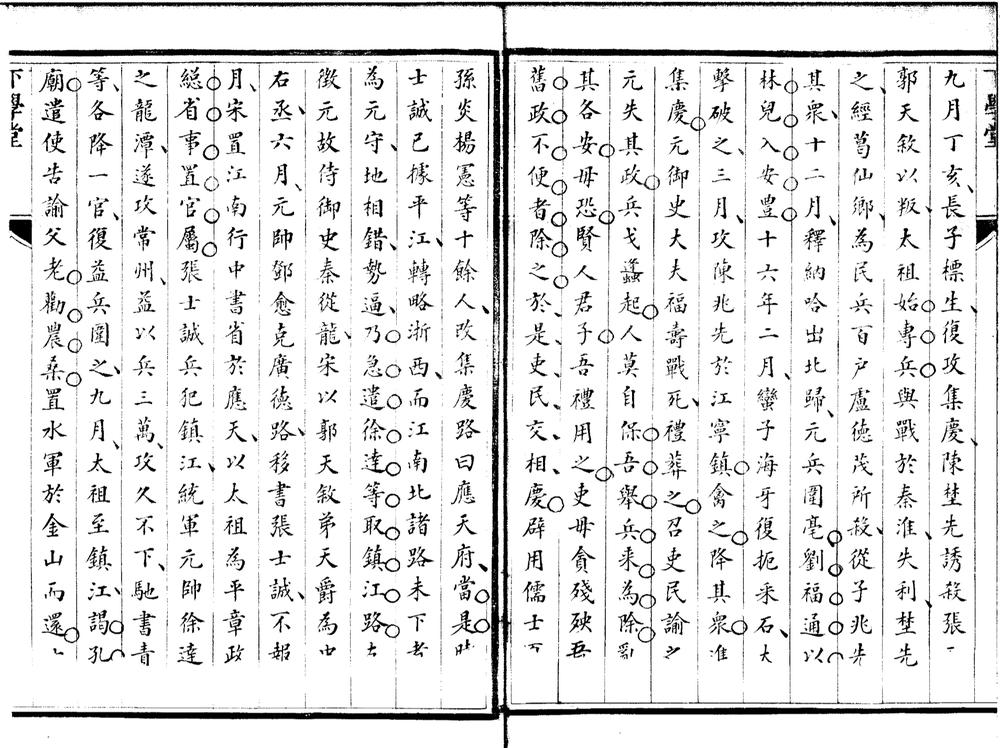 下學堂
九月丁亥長子標生復攻集慶陳埜先誘殺張
郭天敘以叛太祖始專兵與戰於秦淮失利埜先
之經葛仙鄉為民兵百戶盧德茂所殺從子兆先
其眾十二月釋納哈出北歸元兵圍亳劉福通以
林兒入安豊十六年二月蠻子海牙復扼采石大
擊破之三月攻陳兆先於江寧鎮禽之降其眾進
集慶元御史大夫福壽戰死禮葬之召吏民諭之
元失其政兵戈蠭起人莫自保吾舉兵来為除亂
其各安毋恐賢人君子吾禮用之吏毋貪殘殃吾
舊政不便者除之於是吏民交相慶辟用儒士
孫炎楊憲等十餘人改集慶路曰應天府當是時
士誠已據平江轉略浙西而江南北諸路未下者
為元守地相錯勢逼乃急遣徐達等取鎮江路
徵元故侍御史秦從龍宋以郭天敘弟天爵為中
右丞六月元帥鄧愈克廣德路移書張士誠不報
月宋置江南行中書省於應天以太祖為平章政
総省事置官屬張士誠兵犯鎮江統軍元帥徐達
之龍潭遂攻常州益以兵三萬攻久不下馳書責
等各降一官復益兵圍之九月太祖至鎮江謁孔
廟遣使告諭父老勸農桑置水軍於金山而還
下學堂